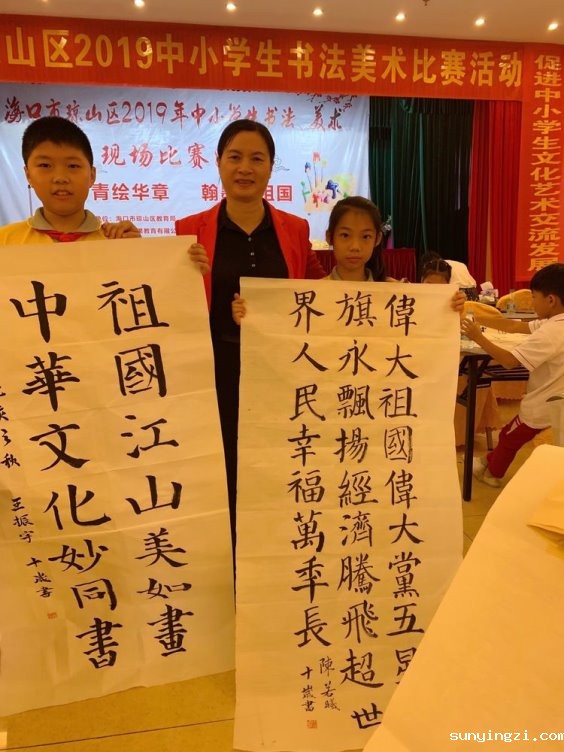 山区2019中小学生书法美术比赛活动
促进中小学生文化艺术交流发展
海口市琼山区2019年中小学生书法、美术
现场比赛
青绘华章 翰 祖国
单位：海口市琼山区教育局
教育有限公
祖國江山美如畫
中華文化妙同書
之秋 王振宇 十歲書
偉大祖國偉大黨五星
旗永飄揚經濟騰飛超世
界人民幸福萬秊長
陳若曦
十歲書
sunyingzi.com